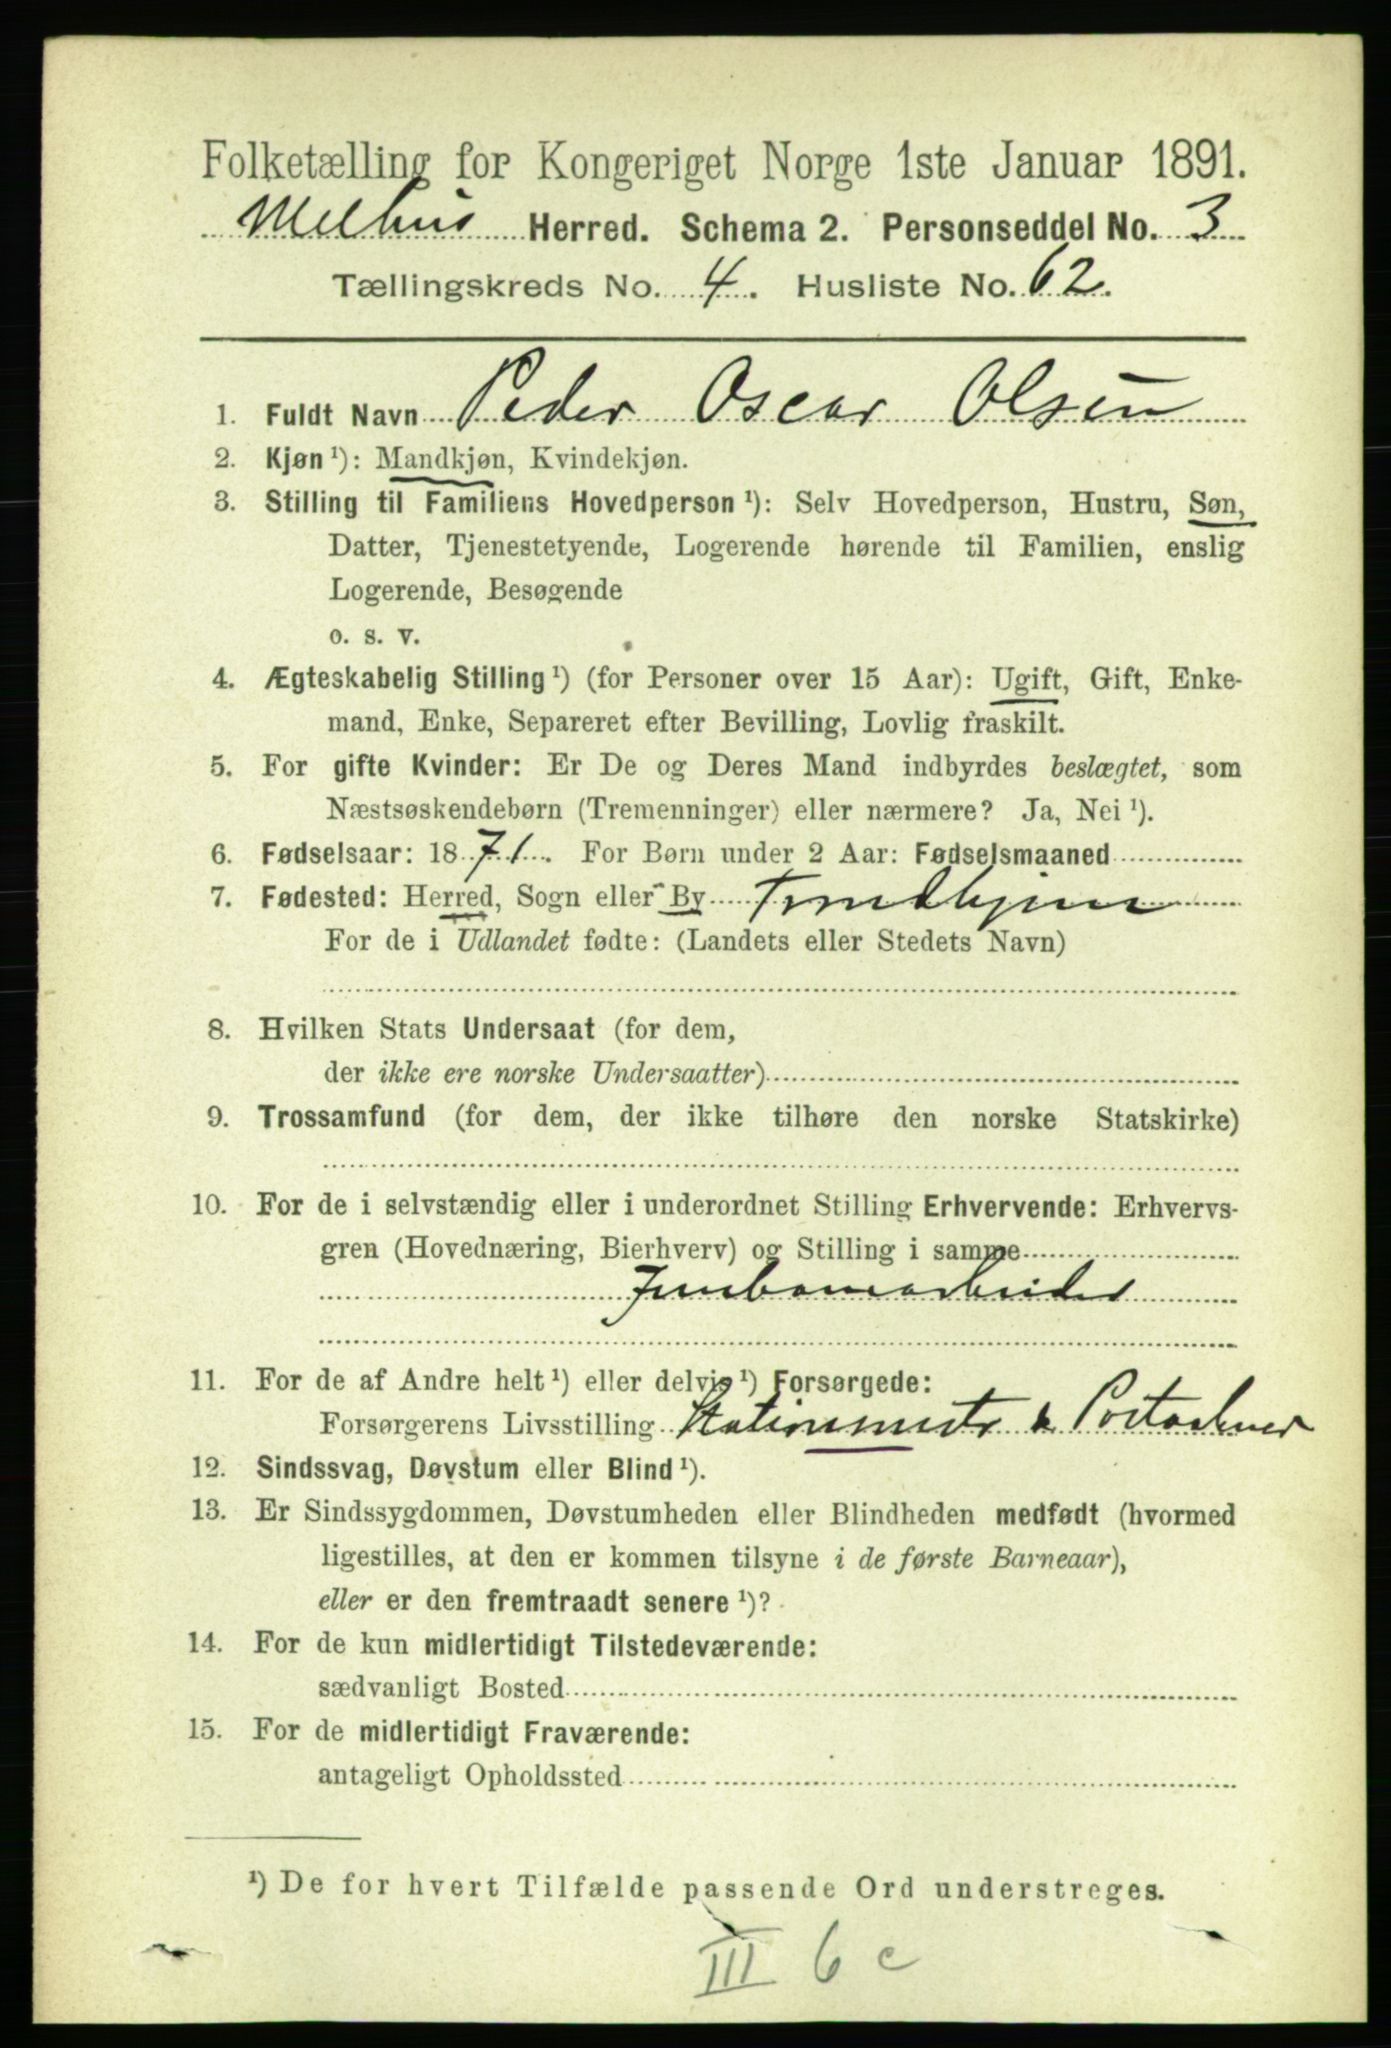 Folketælling for Kongeriget Norge 1ste Januar 1891.
Melhus Herred. Schema 2. Personseddel No. 3
Tællingskreds No. 4. Husliste No. 62.
1. Fuldt Navn Peder Oscar Olsen
2. Kjøn ¹): Mandkjøn, Kvindekjøn.
3. Stilling til Familiens Hovedperson ¹): Selv Hovedperson, Hustru, Søn,
Datter, Tjenestetyende, Logerende hørende til Familien, enslig
Logerende, Besøgende
o. s. v.
4. Ægteskabelig Stilling ¹) (for Personer over 15 Aar): Ugift, Gift, Enke-
mand, Enke, Separeret efter Bevilling, Lovlig fraskilt.
5. For gifte Kvinder: Er De og Deres Mand indbyrdes beslægtet, som
Næstsøskendebørn (Tremenninger) eller nærmere? Ja, Nei ¹).
6. Fødselsaar: 1871. For Børn under 2 Aar: Fødselsmaaned
7. Fødested: Herred, Sogn eller By Trondhjem
For de i Udlandet fødte: (Landets eller Stedets Navn)
8. Hvilken Stats Undersaat (for dem,
der ikke ere norske Undersaatter)
9. Trossamfund (for dem, der ikke tilhøre den norske Statskirke)
10. For de i selvstændig eller i underordnet Stilling Erhvervende: Erhvervs-
gren (Hovednæring, Bierhverv) og Stilling i samme
Jernbanearbeider
11. For de af Andre helt ¹) eller delvis ¹) Forsørgede:
Forsørgerens Livsstilling Stationsmester & Postaabner
12. Sindssvag, Døvstum eller Blind ¹).
13. Er Sindssygdommen, Døvstumheden eller Blindheden medfødt (hvormed
ligestilles, at den er kommen tilsyne i de første Barneaar),
eller er den fremtraadt senere ¹)?
14. For de kun midlertidigt Tilstedeværende:
sædvanligt Bosted
15. For de midlertidigt Fraværende:
antageligt Opholdssted
¹) De for hvert Tilfælde passende Ord understreges.
III 6 c